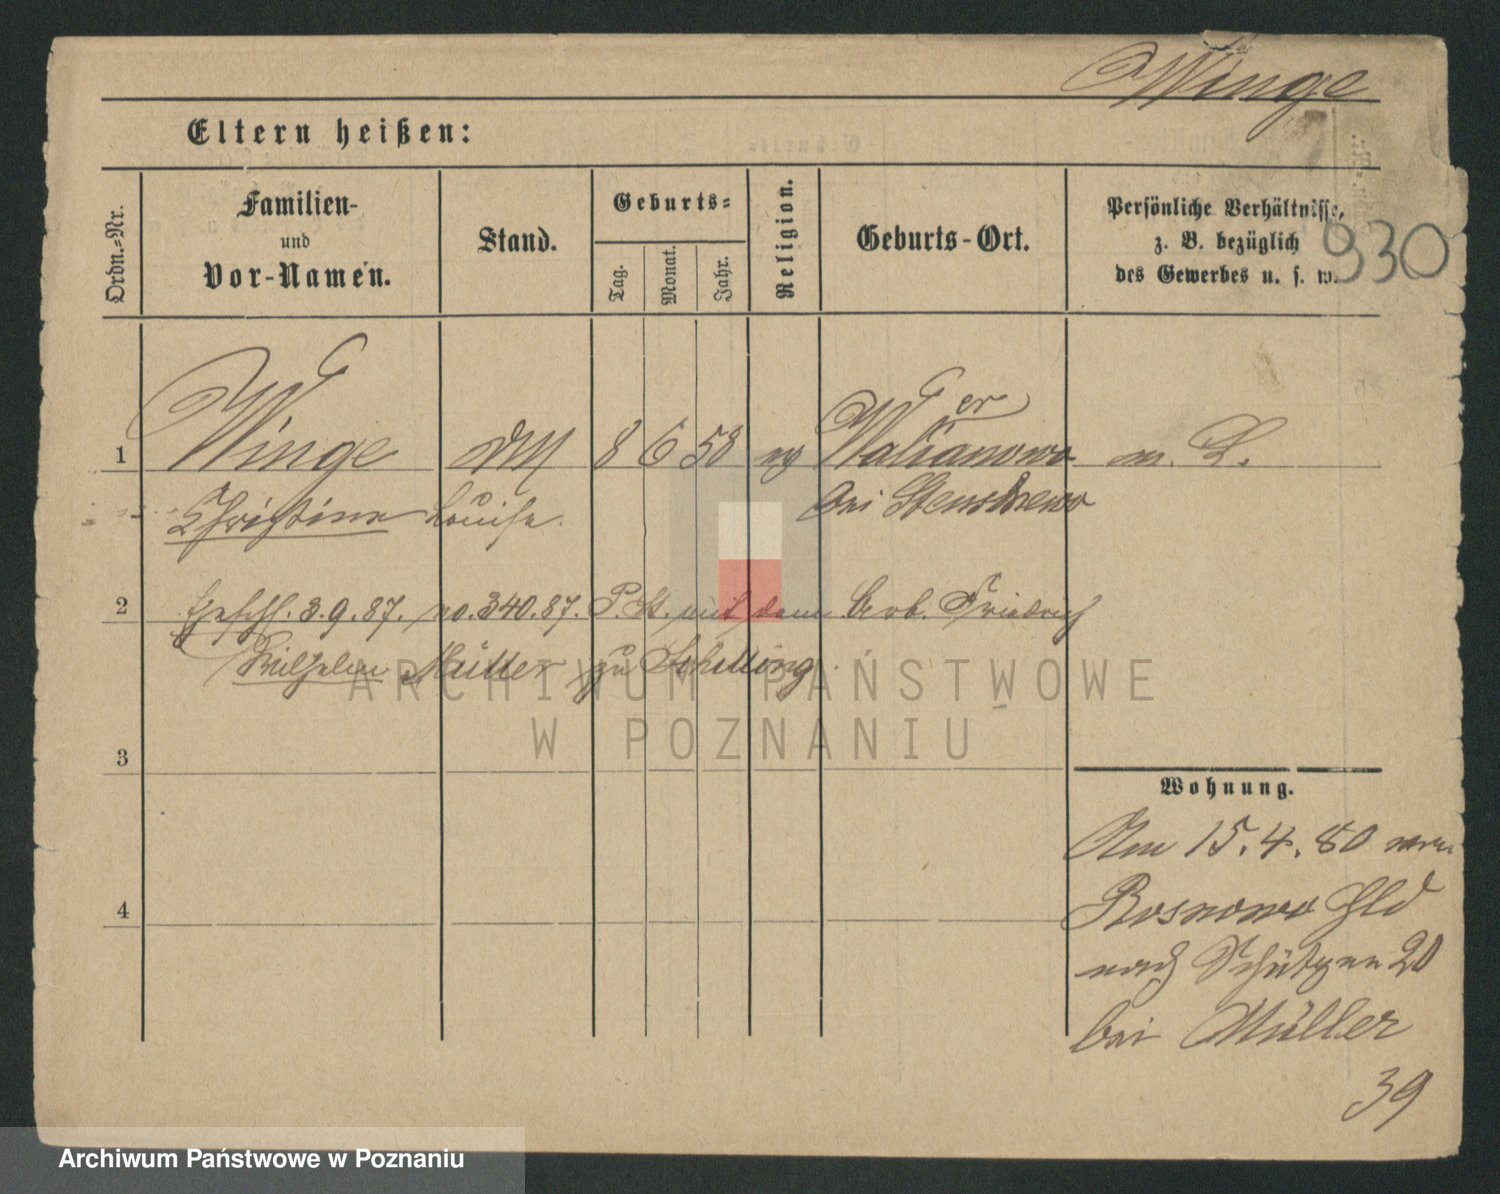 Winge
Eltern heißen:
930
Ordn.-Nr.
Familien-
und
Vor-Namen.
Stand.
Geburts-
Tag.
Monat.
Jahr.
Religion.
Geburts-Ort.
Persönliche Verhältnisse,
z. B. bezüglich
des Gewerbes u. s. w.
er
1 Winge 8 6 58 Walianowo
Christine Louise. bei Stenschewo
2 Eheschl. 3.9.87. no. 340.87. P. St. mit dem Arb. Friedrich
Wilhelm Müller zu Schilling.
3
4
Wohnung.
Am 15.4.80 von
Rosnowo Hld
nach Schützen 20
bei Müller
39
ARCHIWUM PAŃSTWOWE
W POZNANIU
Archiwum Państwowe w Poznaniu